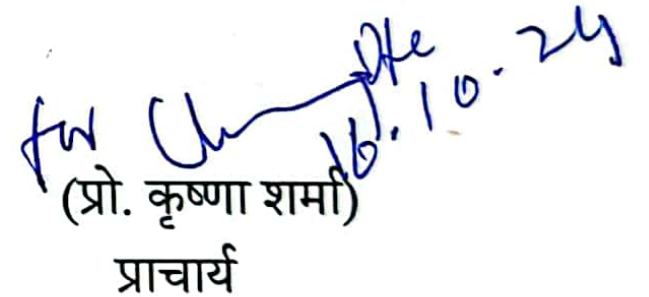 for
16.10.24
(प्रो. कृष्णा शर्मा)
प्राचार्य